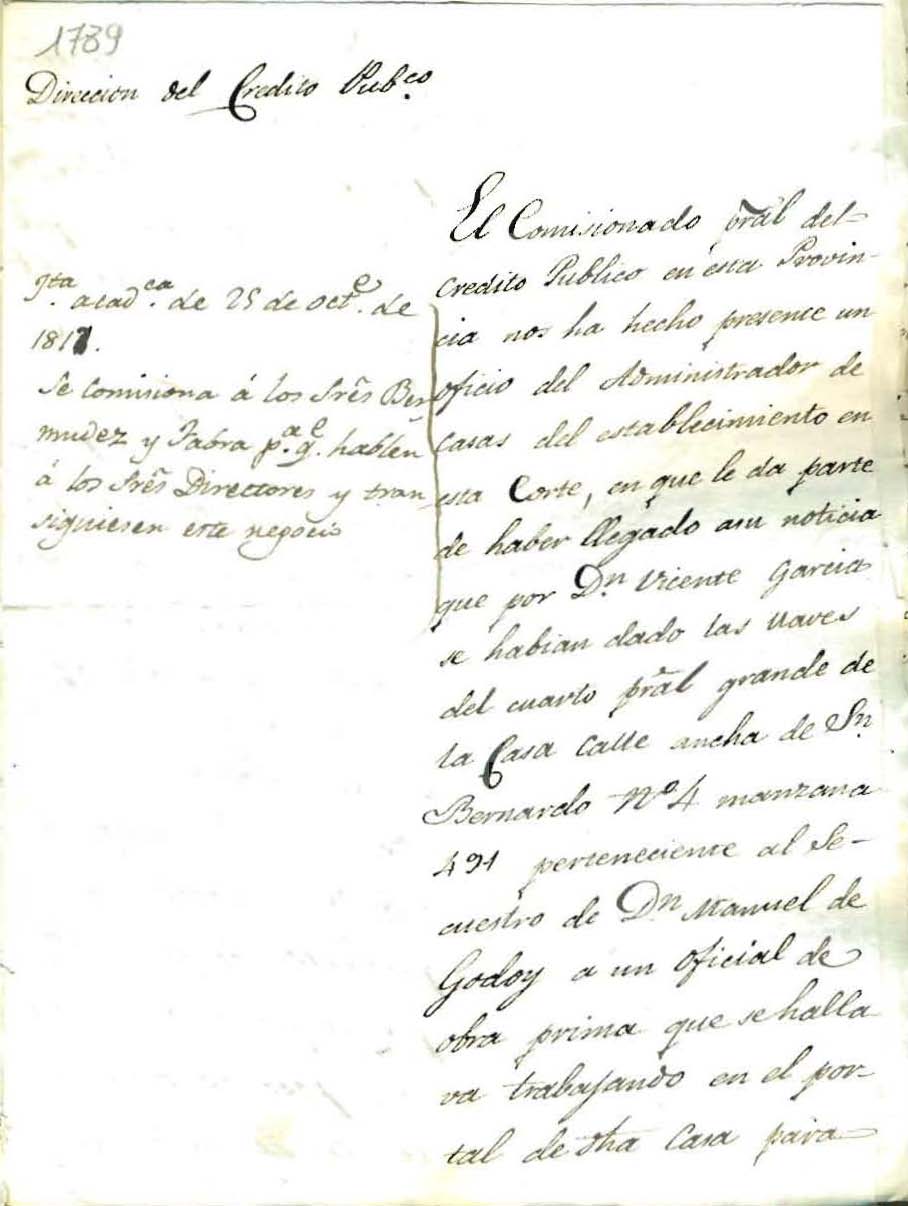 1789
Direccion del Credito Pub.co
Jta. acad.ca de 25 de oct.e de
1817.
Se comisiona á los Srẽs Ber
mudez y Tabra p.a q.e hablen
á los Srẽs Directores y tran
siguiesen este negocio
El Comisionado prãl del
Credito Publico en esta Provin-
cia nos ha hecho presente un
oficio del Administrador de
Casas del establecimiento en
esta Corte, en que le da parte
de haber llegado asu noticia
que por Dn Vicente Garcia
se habian dado las llaves
del cuarto prãl grande de
la Casa Calle ancha de Sn
Bernardo No 4 manzana
491 perteneciente al Se-
cuestro de Dn Manuel de
Godoy a un oficial de
obra prima que se halla
va trabajando en el por-
tal de dha Casa para